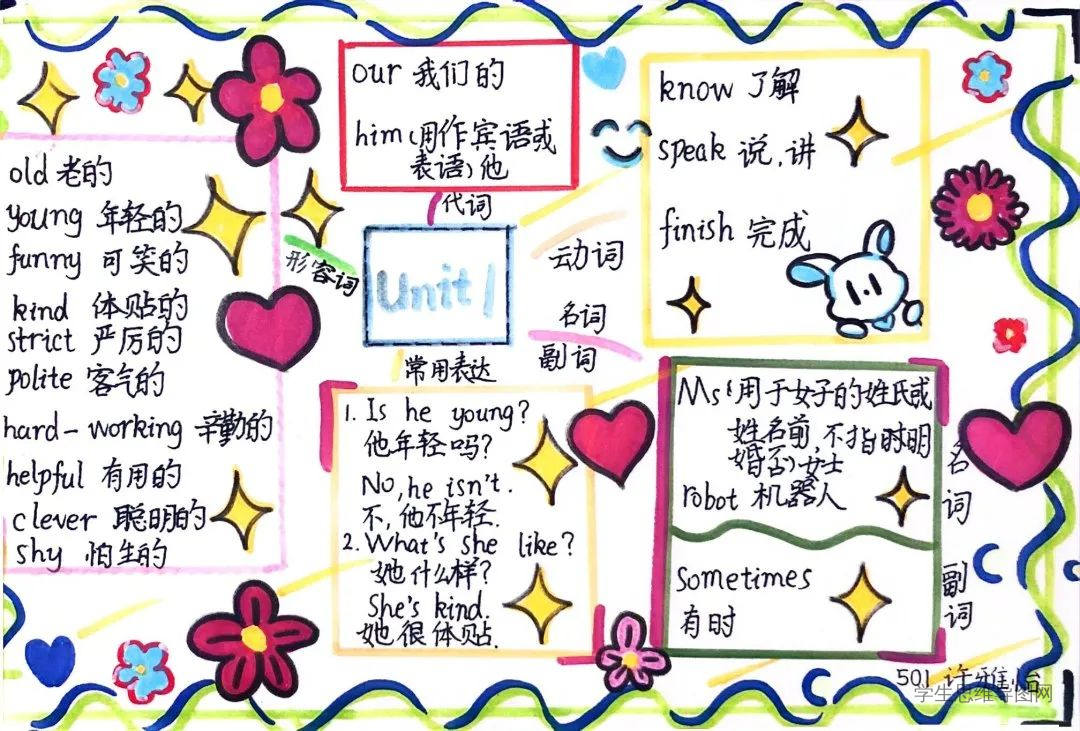 our 我们的
him(用作宾语或
表语)他
代词
know 了解
speak 说,讲
finish 完成
动词
old 老的
young 年轻的
funny 可笑的
kind 体贴的
strict 严厉的
polite 客气的
hard-working 辛勤的
helpful 有用的
clever 聪明的
shy 怕生的
形容词
Unit 1
名词
副词
常用表达
1. Is he young?
他年轻吗?
No, he isn't.
不,他不年轻.
2. What's she like?
她什么样?
She's kind.
她很体贴.
Ms(用于女子的姓氏或
姓名前,不指时明
婚否)女士
robot 机器人
名词
sometimes
有时
副词
501 许雅怡
学生思维导图网